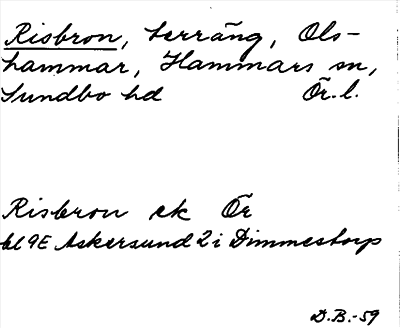 Risbron, terräng, Ols-
hammar, Hammars sn,
Sundbo hd Ör. l.
Risbron ek Ör
bl 9E Askersund 2 i Dimmestorp
D.B.-59